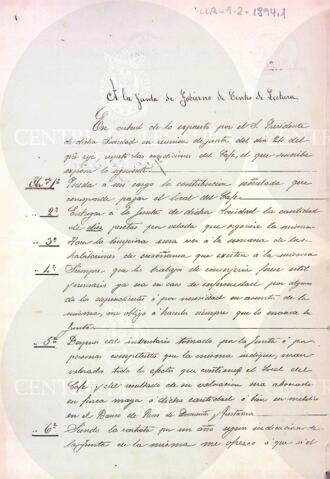 UR-9-2-1894.1
A la Junta de Gobierno de Centro de Lectura.
En virtud de lo expuesto por el Sr Presidente
de dicha Sociedad en reunion de junta del dia 21 del
que rije, las condiciones del Cafe, el que suscribe
expone lo siguiente:
1ª Queda á mi cargo la contribucion señalada que
corresponde pagar el local del Cafe.
" 2ª Entregar á la Junta de dicha Sociedad la cantidad
de diez pesetas por velada que organize la misma
" 3ª la limpieza una vez á la semana de las
habitaciones de enseñanza que existen á la misma
" 4ª Siempre que los trabajos de conserjeria fuese util
ya sea en caso de enfermedad por alguno
de los dependientes ó por necesidad en asunto de la
misma, me obligo á hacerlo siempre que lo mande la
Junta.
" 5ª Despues del inventario tomado por la Junta ó por
personas competentes que la misma indique, seran
valorados todos los efectos que contenga el local del
Cafe y del resultado de su valuacion sera abonado
en finca mayor á dicha cantidad ó bien en metalico
en el Banco de Reus de Descuentos y Prestamos
" 6ª Siendo la contrata por un año segun indicacion de
la Junta de la misma me ofresco á que si el